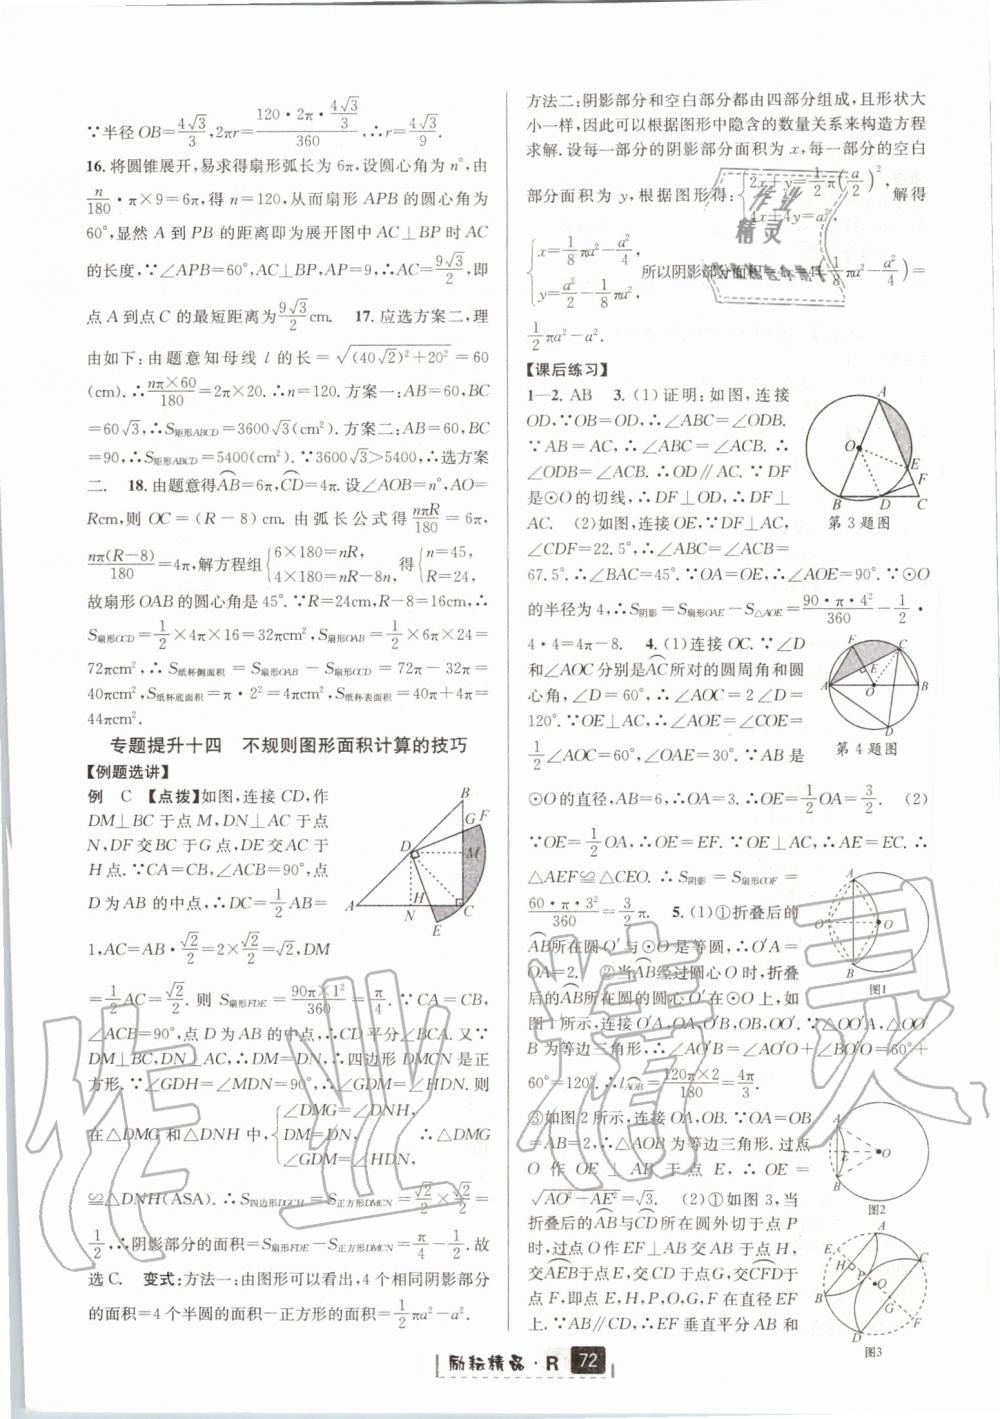 ∵半径OB=4√3/3,2πr=(120·2π·4√3/3)/360,∴r=4√3/9.
16. 将圆锥展开,易求得扇形弧长为6π,设圆心角为n°,由
n/180·π×9=6π,得n=120,从而扇形APB的圆心角为
60°,显然A到PB的距离即为展开图中AC⊥BP时AC
的长度,∵∠APB=60°,AC⊥BP,AP=9,∴AC=9√3/2,即
点A到点C的最短距离为9√3/2cm. 17. 应选方案二,理
由如下:由题意知母线l的长=√((40√2)²+20²)=60
(cm).∴nπ×60/180=2π×20.∴n=120. 方案一:AB=60,BC
=60√3,∴S矩形ABCD=3600√3(cm²). 方案二:AB=60,BC
=90,∴S矩形ABCD=5400(cm²).∵3600√3>5400,∴选方案
二. 18. 由题意得⌒AB=6π,⌒CD=4π. 设∠AOB=n°,AO=
Rcm,则OC=(R-8)cm. 由弧长公式得nπR/180=6π,
nπ(R-8)/180=4π,解方程组{6×180=nR, 4×180=nR-8n, 得{n=45, R=24,
故扇形OAB的圆心角是45°.∵R=24cm,R-8=16cm,∴
S扇形OCD=1/2×4π×16=32πcm²,S扇形OAB=1/2×6π×24=
72πcm²,∴S纸杯侧面积=S扇形OAB-S扇形OCD=72π-32π=
40πcm²,S纸杯底面积=π·2²=4πcm²,S纸杯表面积=40π+4π=
44πcm².
专题提升十四 不规则图形面积计算的技巧
【例题选讲】
例 C 【点拨】如图,连接CD,作
DM⊥BC于点M,DN⊥AC于点
N,DF交BC于G点,DE交AC于
H点.∵CA=CB,∠ACB=90°,点
D为AB的中点,∴DC=1/2AB=
1,AC=AB·√2/2=2×√2/2=√2,DM
=1/2AC=√2/2. 则S扇形FDE=90π×1²/360=π/4.∵CA=CB,
∠ACB=90°,点D为AB的中点,∴CD平分∠BCA. 又∵
DM⊥BC,DN⊥AC,∴DM=DN,∴四边形DMCN是正
方形.∵∠GDH=∠MDN=90°,∴∠GDM=∠HDN. 则
在△DMG和△DNH中,{∠DMG=∠DNH, DM=DN, ∠GDM=∠HDN, ∴△DMG
≌△DNH(ASA).∴S四边形DGCH=S正方形DMCN=√2/2×√2/2=
1/2,∴阴影部分的面积=S扇形FDE-S正方形DMCN=π/4-1/2. 故
选C. 变式:方法一:由图形可以看出,4个相同阴影部分
的面积=4个半圆的面积-正方形的面积=1/2πa²-a².
B
G F
D
M
A N H C
E
方法二:阴影部分和空白部分都由四部分组成,且形状大
小一样,因此可以根据图形中隐含的数量关系来构造方程
求解. 设每一部分的阴影部分面积为x,每一部分的空白
部分面积为y,根据图形得:{2x+y=1/2π(a/2)², 4x+4y=a², 解得
{x=1/8πa²-a²/4, y=a²/2-1/8πa², 所以阴影部分面积=4x=4(1/8πa²-a²/4)=
1/2πa²-a².
【课后练习】
1—2. AB 3. (1)证明:如图,连接
OD,∵OB=OD,∴∠ABC=∠ODB.
∵AB=AC,∴∠ABC=∠ACB.∴
∠ODB=∠ACB.∴OD∥AC.∵DF
是⊙O的切线,∴DF⊥OD,∴DF⊥
AC. (2)如图,连接OE,∵DF⊥AC,
∠CDF=22.5°,∴∠ABC=∠ACB=
67.5°.∴∠BAC=45°.∵OA=OE,∴∠AOE=90°.∵⊙O
的半径为4,∴S阴影=S扇形OAE-S△AOE=90·π·4²/360-1/2·
4·4=4π-8. 4. (1)连接OC.∵∠D
和∠AOC分别是⌒AC所对的圆周角和圆
心角,∠D=60°,∴∠AOC=2∠D=
120°.∵OE⊥AC,∴∠AOE=∠COE=
1/2∠AOC=60°,∠OAE=30°.∵AB是
⊙O的直径,AB=6,∴OA=3.∴OE=1/2OA=3/2. (2)
∵OE=1/2OA,∴OE=EF.∵OE⊥AC,∴AE=EC.∴
△AEF≌△CEO.∴S阴影=S扇形COF=
60·π·3²/360=3/2π. 5. (1)①折叠后的
⌒AB所在圆O′与⊙O是等圆,∴O′A=
OA=2. ②当⌒AB经过圆心O时,折叠
后的⌒AB所在的圆的圆心O′在⊙O上,如
图1所示,连接O′A,OA,O′B,OB,OO′.∵△OO′A,△OO′
B为等边三角形,∴∠AOB=∠AO′O+∠BO′O=60°+
60°=120°.∴l⌒AOB=120π×2/180=4π/3.
③如图2所示,连接OA,OB.∵OA=OB
=AB=2,∴△AOB为等边三角形. 过点
O作OE⊥AB于点E,∴OE=
√(AO²-AE²)=√3. (2)①如图3,当
折叠后的⌒AB与⌒CD所在圆外切于点P
时,过点O作EF⊥AB交AB于点H,
交⌒AEB于点E,交CD于点G,交⌒CFD于
点F,即点E,H,P,O,G,F在直径EF
上.∵AB∥CD,∴EF垂直平分AB和
第3题图
第4题图
图1
图2
图3
作业
精灵
作业精灵
励耘精品·R 72